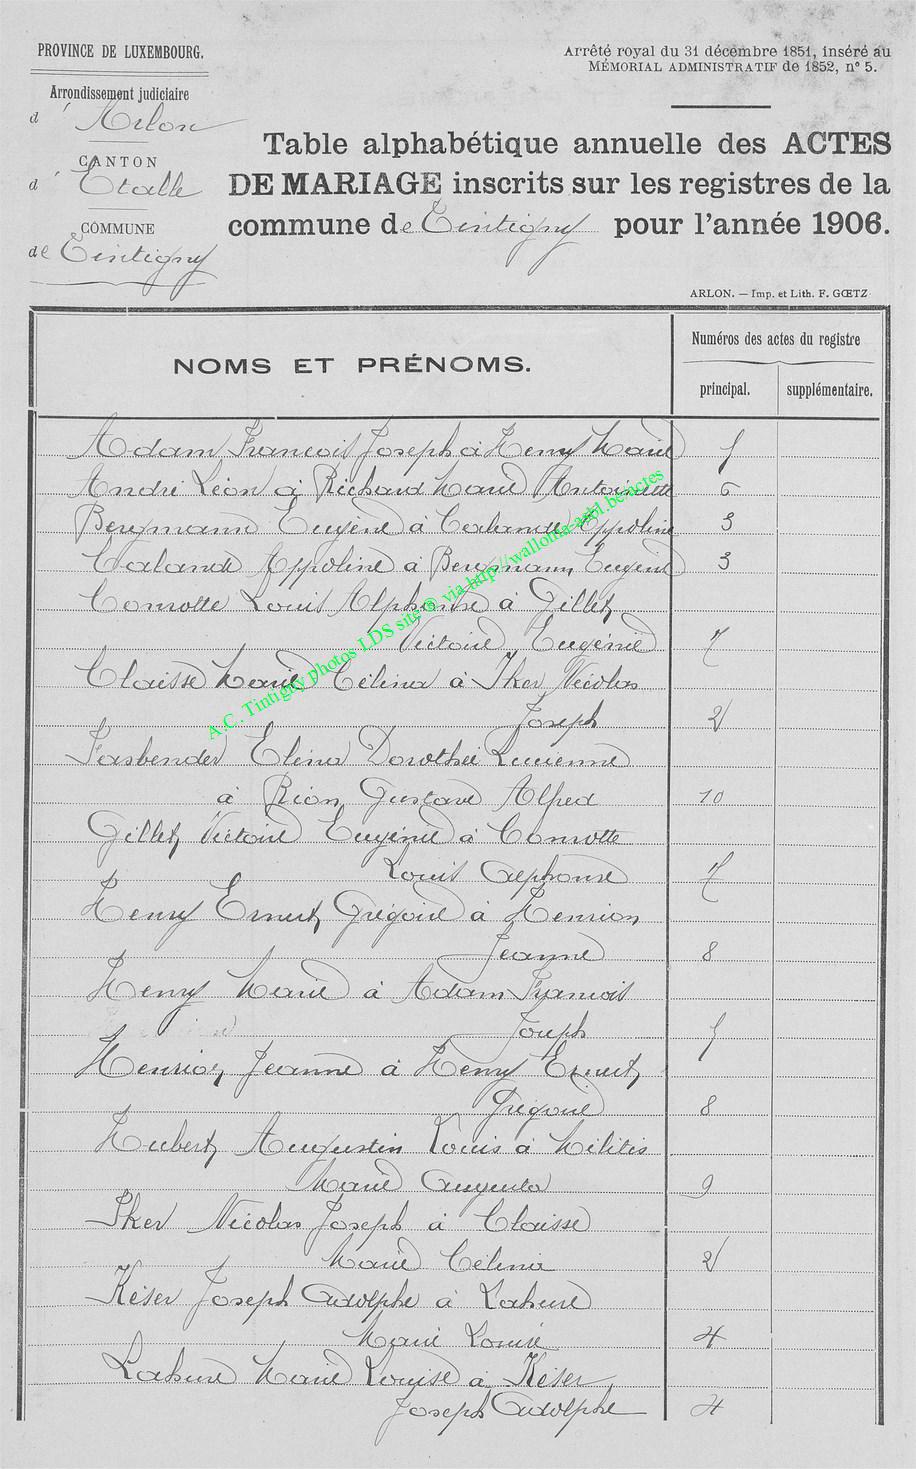 PROVINCE DE LUXEMBOURG.
Arrondissement judiciaire
d' Arlon
CANTON
d' Etalle
COMMUNE
de Tintigny
Arrêté royal du 31 décembre 1851, inséré au
MÉMORIAL ADMINISTRATIF de 1852, n° 5.
Table alphabétique annuelle des ACTES
DE MARIAGE inscrits sur les registres de la
commune de Tintigny pour l'année 1906.
ARLON. — Imp. et Lith. F. GŒTZ
NOMS ET PRÉNOMS.
Numéros des actes du registre
principal. supplémentaire.
Adam François Joseph à Henry Marie 1
André Léon à Richard Marie Antoinette 6
Bergmann Eugène à Calande Appoline 3
Calande Appoline à Bergmann Eugène 3
Comotte Louis Alphonse à Gillet
Victoire Eugénie 7
Claisse Marie Célina à Iker Nicolas
Joseph 2
Fasbender Elina Dorothée Lucienne
à Rion Gustave Alfred 10
Gillet Victoire Eugénie à Comotte
Louis Alphonse 7
Henry Ernest Grégoire à Henrion
Jeanne 8
Henry Marie à Adam François
Joseph 1
Henrion Jeanne à Henry Ernest
Grégoire 8
Hubert Augustin Louis à Militis
Marie Augusta 9
Iker Nicolas Joseph à Claisse
Marie Célina 2
Késer Joseph Adolphe à Lahure
Marie Louise 4
Lahure Marie Louise à Késer
Joseph Adolphe 4
A.C. Tintigny photos LDS site ® via http://wallonia-asbl.be/actes